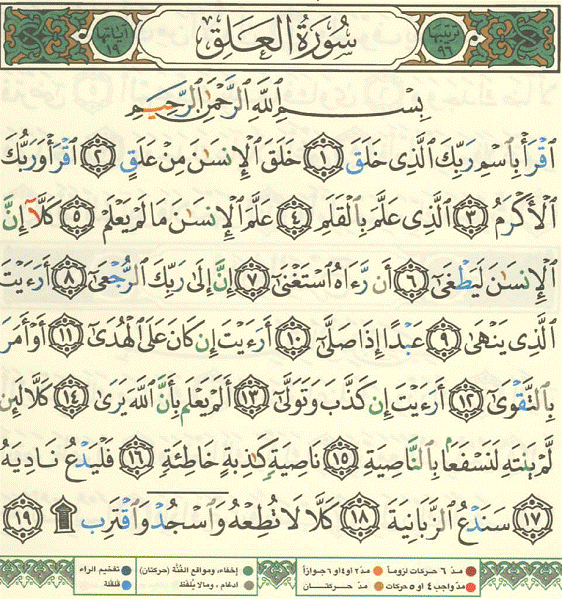 ترتيبها ٩٦ سُورَةُ الْعَلَقِ آياتها ١٩
بِسْمِ ٱللَّهِ ٱلرَّحْمَٰنِ ٱلرَّحِيمِ
ٱقْرَأْ بِٱسْمِ رَبِّكَ ٱلَّذِى خَلَقَ ١ خَلَقَ ٱلْإِنسَٰنَ مِنْ عَلَقٍ ٢ ٱقْرَأْ وَرَبُّكَ
ٱلْأَكْرَمُ ٣ ٱلَّذِى عَلَّمَ بِٱلْقَلَمِ ٤ عَلَّمَ ٱلْإِنسَٰنَ مَا لَمْ يَعْلَمْ ٥ كَلَّآ إِنَّ
ٱلْإِنسَٰنَ لَيَطْغَىٰٓ ٦ أَن رَّءَاهُ ٱسْتَغْنَىٰٓ ٧ إِنَّ إِلَىٰ رَبِّكَ ٱلرُّجْعَىٰٓ ٨ أَرَءَيْتَ
ٱلَّذِى يَنْهَىٰ ٩ عَبْدًا إِذَا صَلَّىٰٓ ١٠ أَرَءَيْتَ إِن كَانَ عَلَى ٱلْهُدَىٰٓ ١١ أَوْ أَمَرَ
بِٱلتَّقْوَىٰٓ ١٢ أَرَءَيْتَ إِن كَذَّبَ وَتَوَلَّىٰٓ ١٣ أَلَمْ يَعْلَم بِأَنَّ ٱللَّهَ يَرَىٰ ١٤ كَلَّا لَئِن
لَّمْ يَنتَهِ لَنَسْفَعًۢا بِٱلنَّاصِيَةِ ١٥ نَاصِيَةٍ كَٰذِبَةٍ خَاطِئَةٍ ١٦ فَلْيَدْعُ نَادِيَهُۥ
١٧ سَنَدْعُ ٱلزَّبَانِيَةَ ١٨ كَلَّا لَا تُطِعْهُ وَٱسْجُدْ وَٱقْتَرِب ۩ ١٩
مدّ ٦ حركات لزوماً مدّ ٢ او ٤ او ٦ جوازاً إخفاء، ومواقع الغُنَّة (حركتان) تفخيم الراء
مدّ واجب ٤ او ٥ حركات مدّ حركتان ادغام، ومالا يُلفظ قلقلة